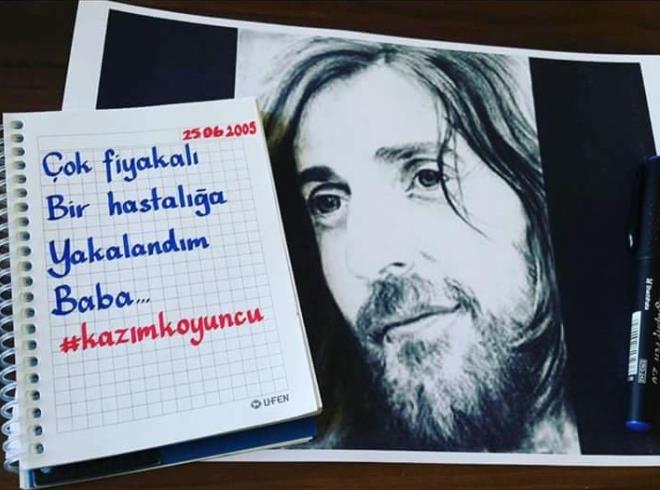 25 06 2005
Çok fiyakalı
Bir hastalığa
Yakalandım
Baba...
#kazımkoyuncu
U-FEN